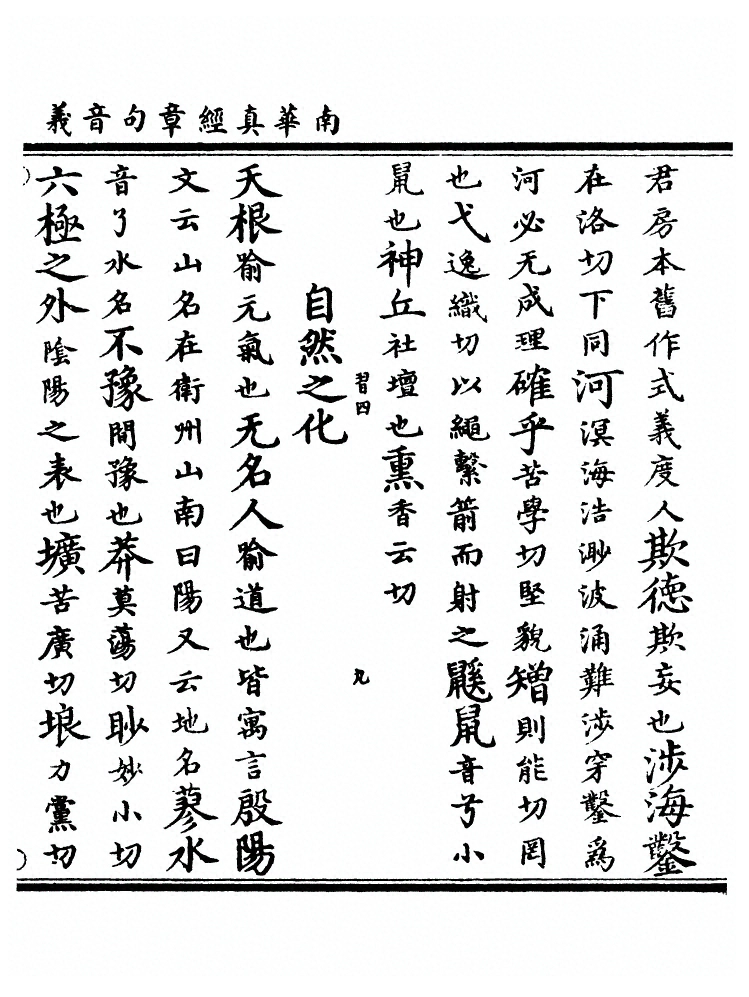 南華真經章句音義
君房本舊作式義度人欺德欺妄也涉海鑿
在洛切下同河溟海浩渺波涌難涉穿鑿為
河必无成理確乎苦學切堅貌矰則能切罔
也弋逸織切以繩繫箭而射之鼷鼠音兮小
鼠也神丘社壇也熏香云切
習四
九
自然之化
天根喻元氣也无名人喻道也皆寓言殷陽
文云山名在衛州山南曰陽又云地名蓼水
音了水名不豫間豫也莽莫蕩切眇妙小切
六極之外陰陽之表也壙苦廣切埌力黨切